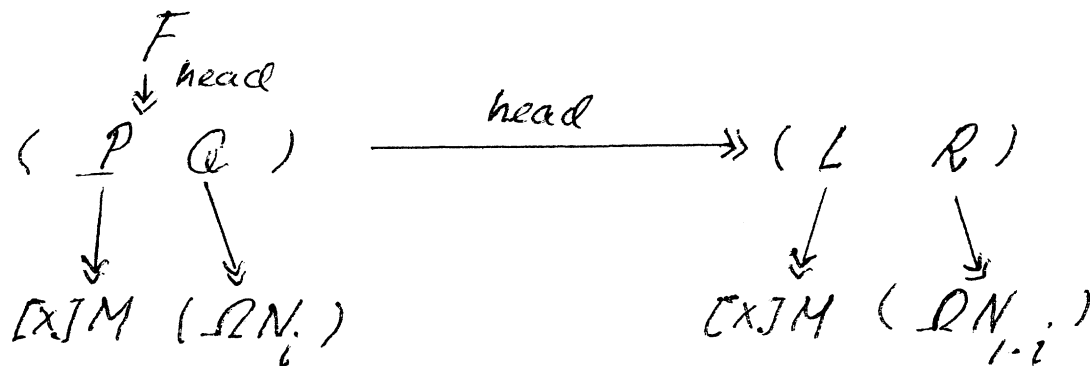 F
head
( P Q ) head ( L R )
[x]M (ΩN_i) [x]M (ΩN_{1-i})